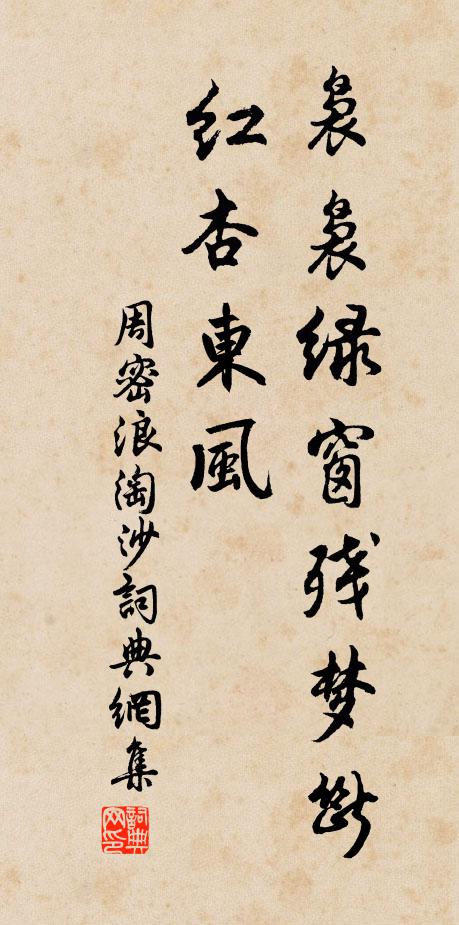 袅袅緑窗残梦断
红杏東風
周密浪淘沙詞典網集
詞典网印